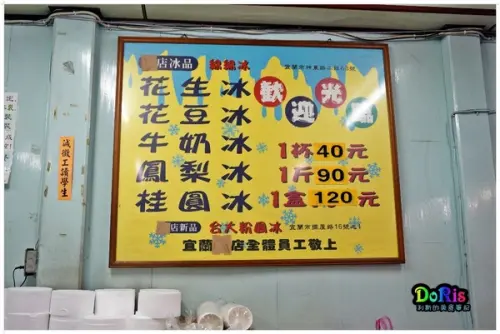 店冰品 綿綿冰
花生冰
花豆冰
牛奶冰
鳳梨冰
桂圓冰
歡迎光
1杯40元
1斤90元
1盒120元
店新品 台大粉圓冰
宜蘭 店全體員工敬上
誠徵工讀學生
DoRis